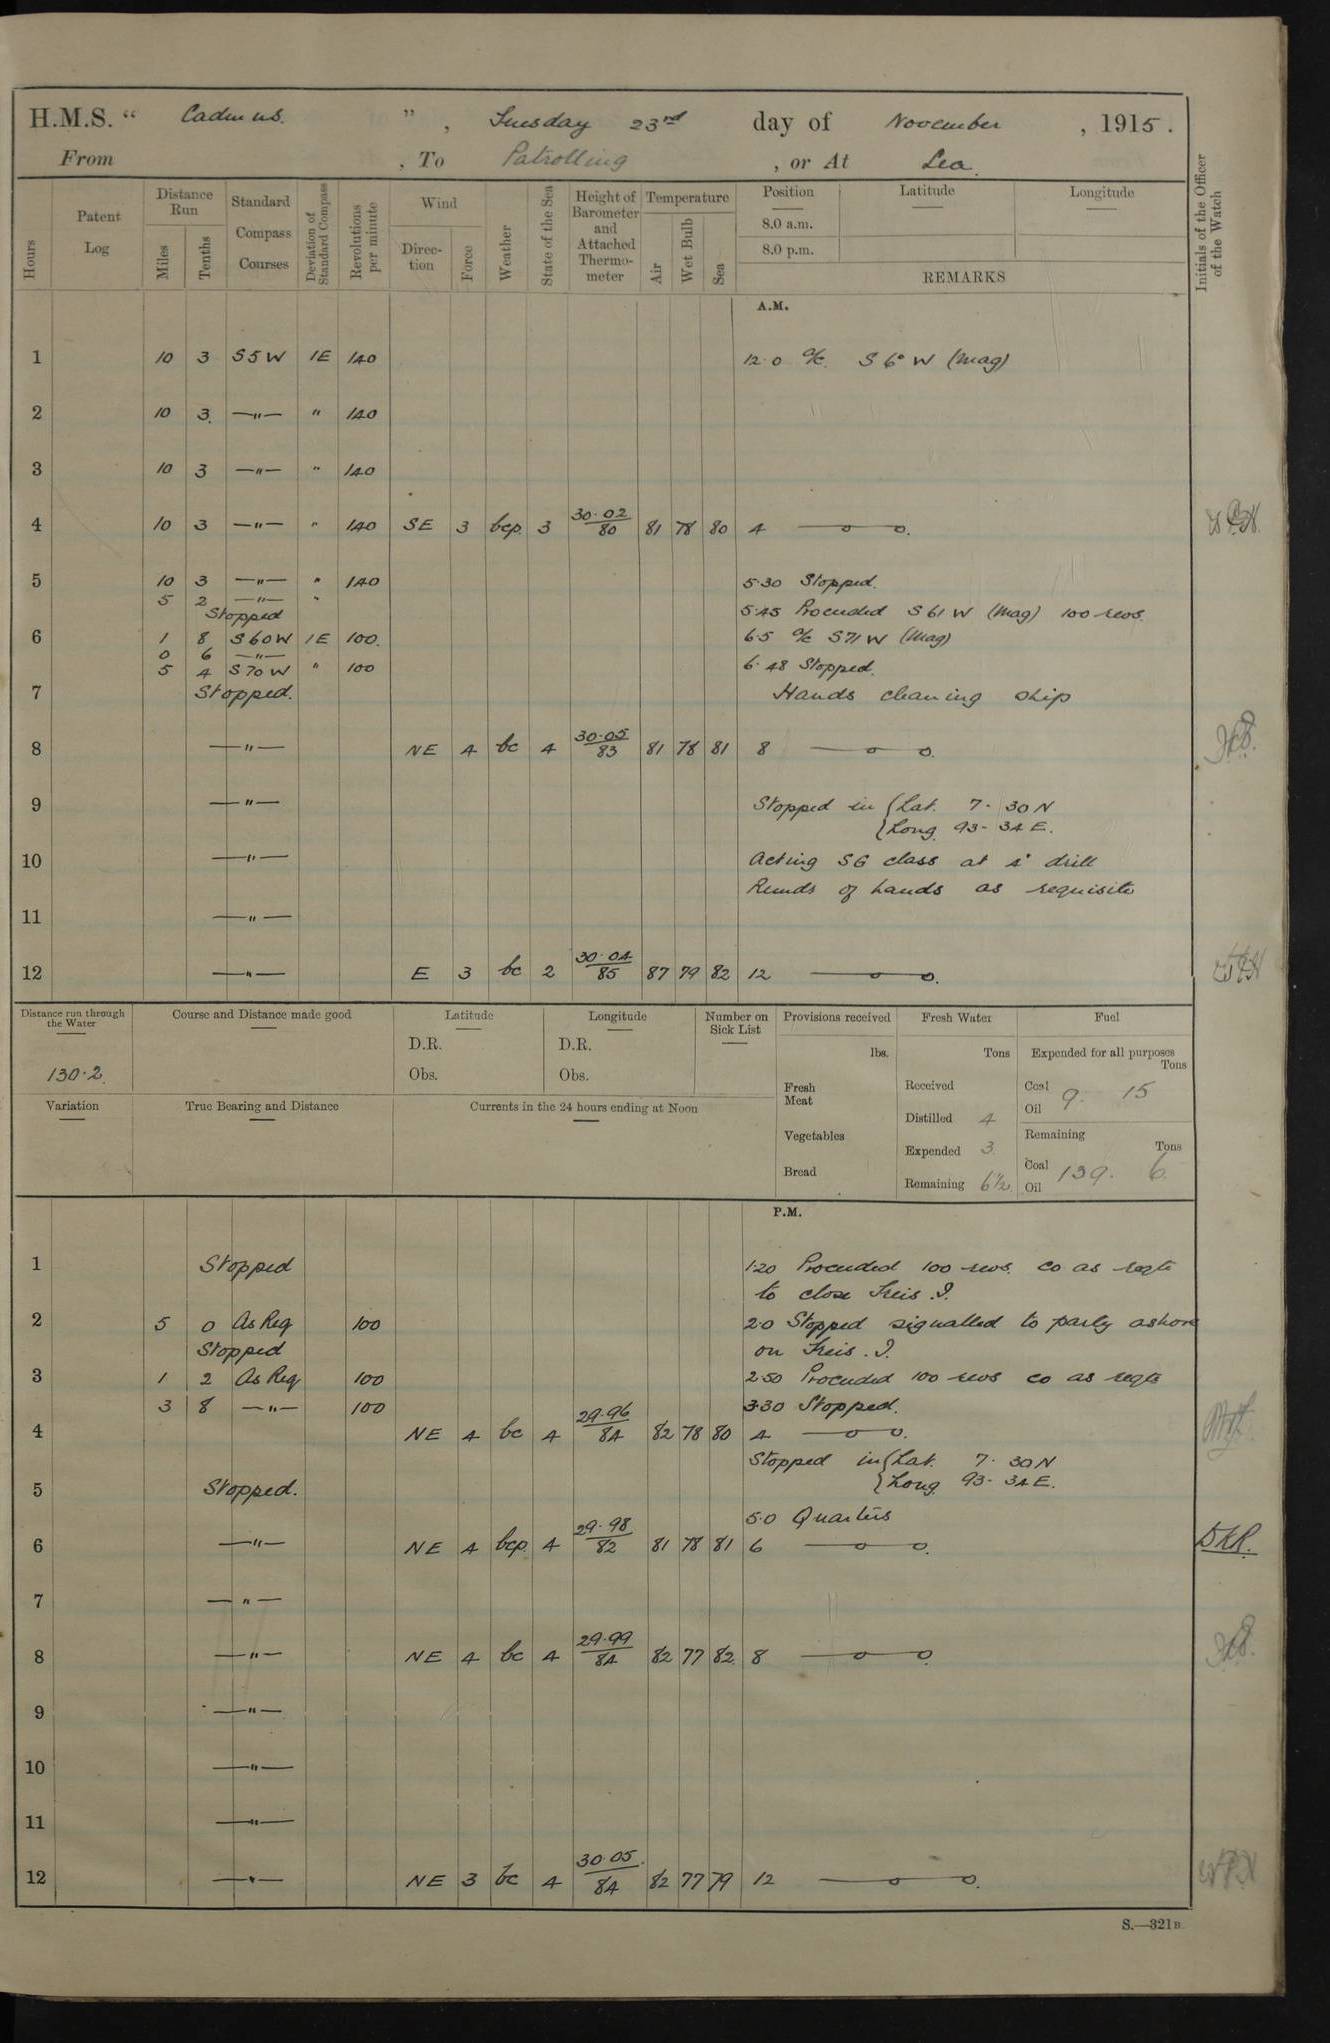 H.M.S. “ Cadmus. ” , Tuesday 23rd day of November , 1915.
From , To Patrolling , or At Sea.
Hours
Patent Log
Distance Run
Miles
Tenths
Standard Compass Courses
Deviation of Standard Compass
Revolutions per minute
Wind
Direction
Force
Weather
State of the Sea
Height of Barometer and Attached Thermometer
Temperature
Air
Wet Bulb
Sea
Position
Latitude
Longitude
8.0 a.m.
8.0 p.m.
REMARKS
Initials of the Officer of the Watch
A.M.
1 10 3 S5W 1E 140 12.0 a/c. S 6° W (Mag)
2 10 3. —"— " 140
3 10 3 —"— " 140
4 10 3 —"— " 140 SE 3 bcp. 3 30.02/80 81 78 80 4 —o—o.
5 10 3 —"— " 140 5.30 Stopped.
5 2 —"— "
Stopped 5.45 Proceeded S 61 W (Mag) 100 revs.
6 1 8 S60W 1E 100. 6.5 a/c S71W (Mag)
0 6 —"—
5 4 S70W " 100 6.48 Stopped.
7 Stopped. Hands cleaning ship
8 —"— NE 4 bc 4 30.05/83 81 78 81 8 —o—o.
9 —"— Stopped in { Lat. 7. 30 N
{ Long. 93- 34 E.
10 —"— Acting SG class at drill
Remdr of hands as requisite
11 —"—
12 —"— E 3 bc 2 30.04/85 87 79 82 12 —o—o.
Distance run through the Water
Course and Distance made good
Latitude
Longitude
Number on Sick List
Provisions received
Fresh Water
Fuel
D.R.
D.R.
lbs.
Tons
Expended for all purposes
Tons
130.2.
Obs.
Obs.
Fresh Meat
Received
Coal 9. 15
Oil
Variation
True Bearing and Distance
Currents in the 24 hours ending at Noon
Distilled 4
Vegetables
Remaining
Expended 3
Tons
Bread
Coal 139. 6
Remaining 6½.
Oil
P.M.
1 Stopped 1.20 Proceeded 100 revs. Co as reqte
to close Treis. I.
2 5 0 As Req 100 2.0 Stopped signalled to party ashore
Stopped on Treis. I.
3 1 2 As Req 100 2.50 Proceeded 100 revs co as reqte
3 8 —"— 100 3.30 Stopped.
4 NE 4 bc 4 29.96/84 82 78 80 4 —o—o.
Stopped in { Lat. 7. 30 N
5 Stopped. { Long. 93- 34 E.
5.0 Quarters
6 —"— NE 4 bcp. 4 29.98/82 81 78 81 6 —o—o. DKR.
7 —"—
8 —"— NE 4 bc 4 29.99/84 82 77 82. 8 —o—o.
9 —"—
10 —"—
11 —"—
12 —"— NE 3 bc 4 30.05/84 82 77 79 12 —o—o.
S.—321B.